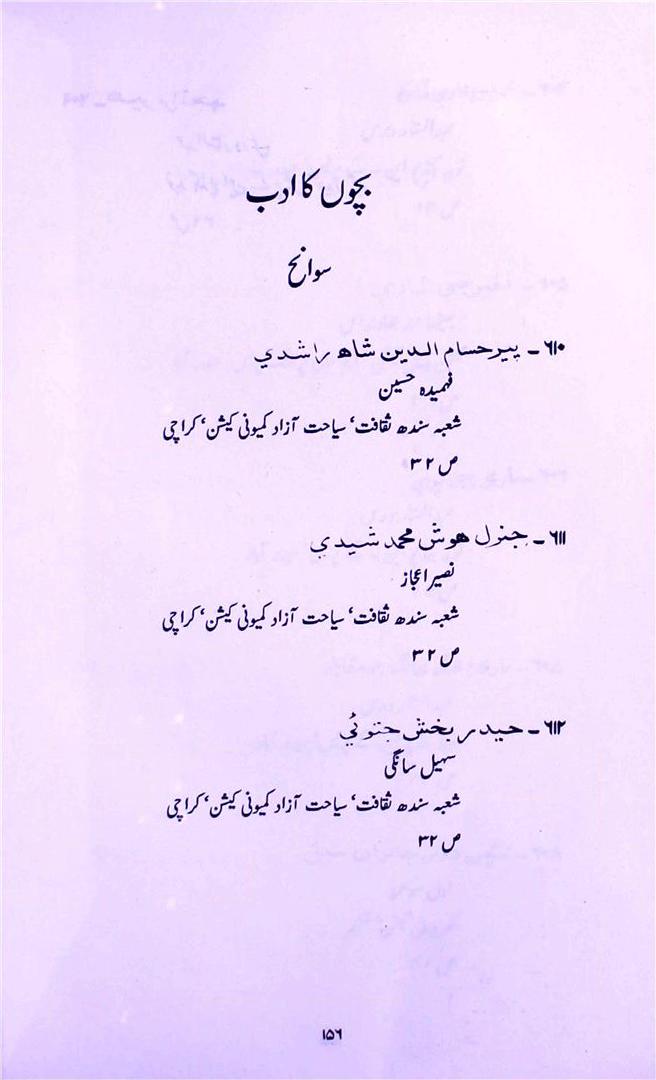 بچوں کا ادب
سوانح
۶۱۰ ـ پير حسام الدين شاھ راشدي
فہمیدہ حسین
شعبہ سندھ ثقافت‘ سیاحت آزاد کمیونی کیشن‘ کراچی
ص ۳۲
۶۱۱ ـ جنرل هوش محمد شيدي
نصیر اعجاز
شعبہ سندھ ثقافت‘ سیاحت آزاد کمیونی کیشن‘ کراچی
ص ۳۲
۶۱۲ ـ حيدر بخش جتوئي
سہیل سانگی
شعبہ سندھ ثقافت‘ سیاحت آزاد کمیونی کیشن‘ کراچی
ص ۳۲
۱۵۶